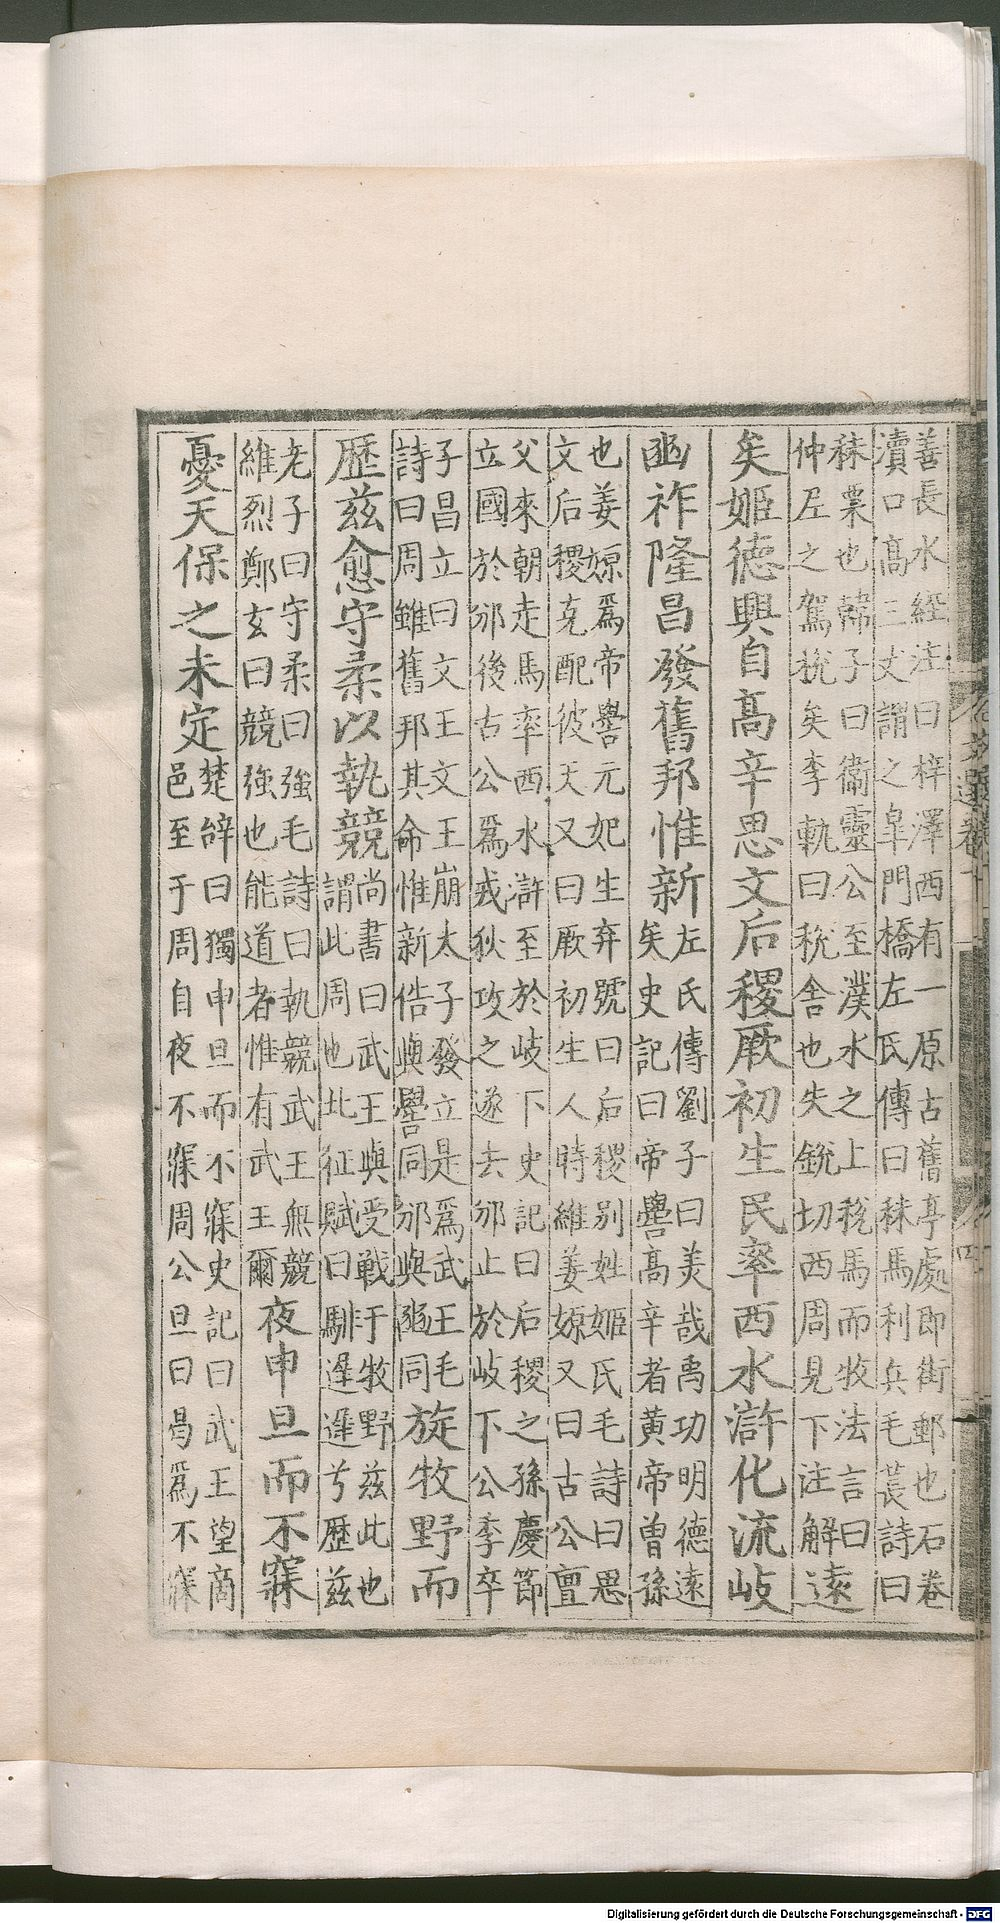 善長水經注曰梓澤西有一原古舊亭處即街郵也石卷
瀆口高三丈謂之皐門橋左氏傳曰秣馬利兵毛萇詩曰
秣粟也韓子曰衞靈公至濮水之上稅馬而牧法言曰
仲尼之駕稅矣李軌曰稅舍也失銳切西周見下注解
遠
矣姬德興自高辛思文后稷厥初生民率西水滸化流岐
豳祚隆昌發舊邦惟新
左氏傳劉子曰美哉禹功明德遠
矣史記曰帝嚳高辛者黃帝曾孫
也姜嫄爲帝嚳元妃生弃號曰后稷別姓姬氏毛詩曰思
文后稷克配彼天又曰厥初生人時維姜嫄又曰古公亶
父來朝走馬率西水滸至於岐下史記曰后稷之孫慶節
立國於邠後古公爲戎狄攻之遂去邠止於岐下公季卒
子昌立曰文王文王崩太子發立是爲武王毛
詩曰周雖舊邦其命惟新俈與嚳同邠與豳同
旋牧野而
歷兹愈守柔以執競
尚書曰武王與受戰于牧野兹此也
謂此周也北征賦曰騑遲遲兮歷兹
老子曰守柔曰強毛詩曰執競武王無競
維烈鄭玄曰競強也能道者惟有武王爾
夜申旦而不寐
憂天保之未定
楚辭曰獨申旦而不寐史記曰武王望商
邑至于周自夜不寐周公旦曰曷爲不寐
Digitalisierung gefördert durch die Deutsche Forschungsgemeinschaft - DFG